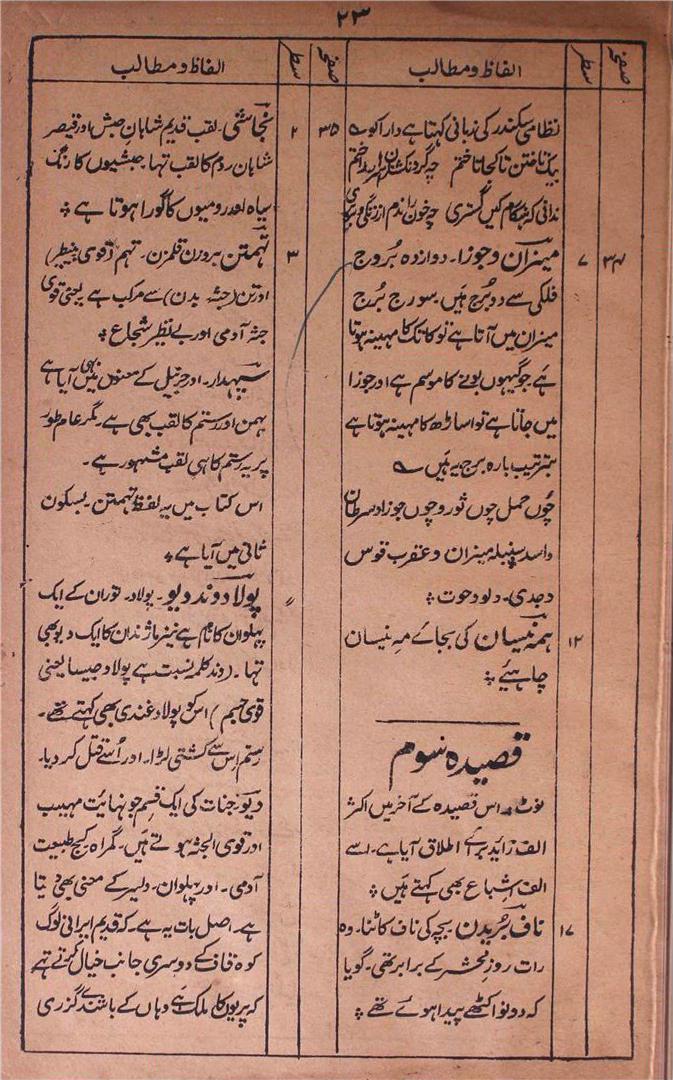 ۲۳
صفحہ سطر الفاظ و مطالب
نظامی سکندر کی زبانی کہتا ہے دارا کو ے
بیک تاختن تا کجا تاختم چہ گردنکشان را سر انداختم
چہ خون راندم از زنگی و
۳۴ ۷ میزان و جوزا۔ دوازدہ بروج
فلکی سے دو برج ہیں۔ سورج برج
میزان میں آتا ہے تو کاتک کا مہینہ ہوتا
ہے جو گیہوں بونے کا موسم ہے اور جوزا
میں جاتا ہے تو اساڑھ کا مہینہ ہوتا ہے
بترتیب بارہ برج یہ ہیں ے
چوں حمل چوں ثور و چوں جوزا و سرطان
و اسد سنبلہ میزان و عقرب قوس
و جدی۔ دلو و حوت ؞
۱۲ ہمہ نیسان کی بجائے مہ نیسان
چاہیئے ؞
قصیدہ سوم
نوٹ۔ اس قصیدہ کے آخر میں اکثر
الف زاید برائے اطلاق آیا ہے۔ اسے
الف اشباع بھی کہتے ہیں ؞
۱۷ ناف بُریدن بچہ کی ناف کاٹنا۔ وہ
رات روز محشر کے برابر تھی۔ گویا
کہ دونو اکٹھے پیدا ہوئے تھے ؞
صفحہ سطر الفاظ و مطالب
۳۵ ۲ نجاشی۔ لقب قدیم شاہان حبش اور قیصر
شاہان روم کا لقب تہا۔ حبشیوں کا رنگ
سیاہ اور رومیوں کا گورا ہوتا ہے ؞
۳ تہمتن بروزن قلمزن۔ تہم (قوی بینظیر)
اور تن (جثہ بدن) سے مرکب ہے یعنی قوی
جثہ آدمی اور بے نظیر شجاع ؞
سپہدار۔ اور جرنیل کے معنوں میں بہی آیا ہے
بہمن اور رستم کا لقب بھی ہے۔ مگر عام طور
پر یہ رستم کا ہی لقب مشہور ہے۔
اس کتاب میں یہ لفظ تہمتن۔ بسکون
ثانی میں آیا ہے ؞
〃 پولادوند دیو۔ پولاد۔ توران کے ایک
پہلوان کا نام ہے نیز ماژندران کا ایک دیو بھی
تہا۔ (وند کلمہ نسبت ہے پولاد جیسا یعنی
قوی جسم) اس کو پولاد غندی بھی کہتے تھے۔
رستم اس سے کشتی لڑا۔ اور اُسے قتل کر دیا۔
دیو۔ جنات کی ایک قسم جو نہایت مہیب
اور قوی الجثہ ہوتے ہیں۔ گمراہ کج طبیعت
آدمی۔ اور پہلوان۔ دلیر کے معنی بھی دیتا
ہے۔ اصل بات یہ ہے۔ کہ قدیم ایرانی لوگ
کوہ قاف کے دوسری جانب خیال کرتے تہے
کہ پریوں کا ملک ہے وہاں کے باشندے گزری